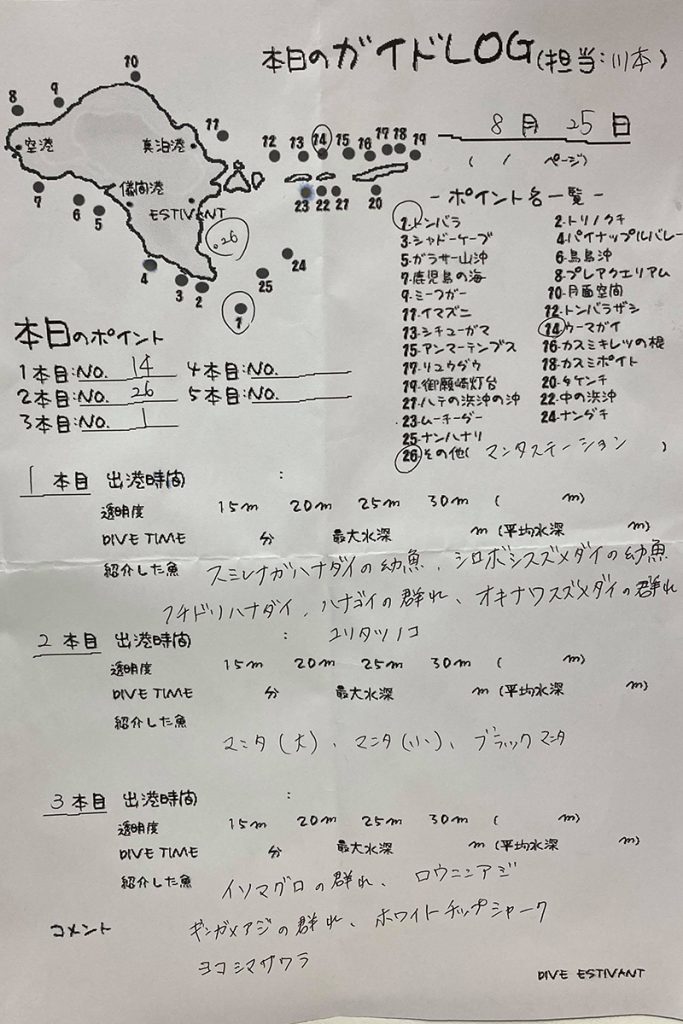 本日のガイドLOG(担当:川本)
8月 25日
( / ページ)
10
9
8
空港
真泊港
11
12 13 14 15 16 17 18 19
7
儀間港
23 22 21
20
6
5
ESTIVANT
.26
24
4
3 2
25
1
- ポイント名一覧 -
1.トンバラ 2.トリノクチ
3.シャドーケーブ 4.パイナップルバレー
5.ガラサー山沖 6.鳥島沖
7.鹿児島の海 8.プレアクエリアム
9.ミーフガー 10.月面空間
11.イマズニ 12.トンバラザシ
13.シチューガマ 14.ウーマガイ
15.アンマーテンプス 16.カスミキレツの根
17.リュウダウ 18.カスミポイト
19.御願崎灯台 20.タケンチ
21.ハテの浜沖の沖 22.中の浜沖
23.ムーチーダー 24.ナンダチ
25.ナンハナリ
26その他(マンタステーション)
本日のポイント
1本目:NO. 14 4本目:NO.
2本目:NO. 26 5本目:NO.
3本目:NO. 1
1本目 出港時間 :
透明度 15m 20m 25m 30m ( m)
DIVE TIME 分 最大水深 m (平均水深 m)
紹介した魚 スミレナガハナダイの幼魚、シロボシスズメダイの幼魚
フチドリハナダイ、ハナゴイの群れ、オキナワスズメダイの群れ
ユリタツノコ
2本目 出港時間 :
透明度 15m 20m 25m 30m ( m)
DIVE TIME 分 最大水深 m (平均水深 m)
紹介した魚
マンタ(大)、マンタ(小)、ブラックマンタ
3本目 出港時間 :
透明度 15m 20m 25m 30m ( m)
DIVE TIME 分 最大水深 m (平均水深 m)
紹介した魚 イソマグロの群れ、ロウニンアジ
コメント ギンガメアジの群れ、ホワイトチップシャーク
ヨコシマサワラ
DIVE ESTIVANT